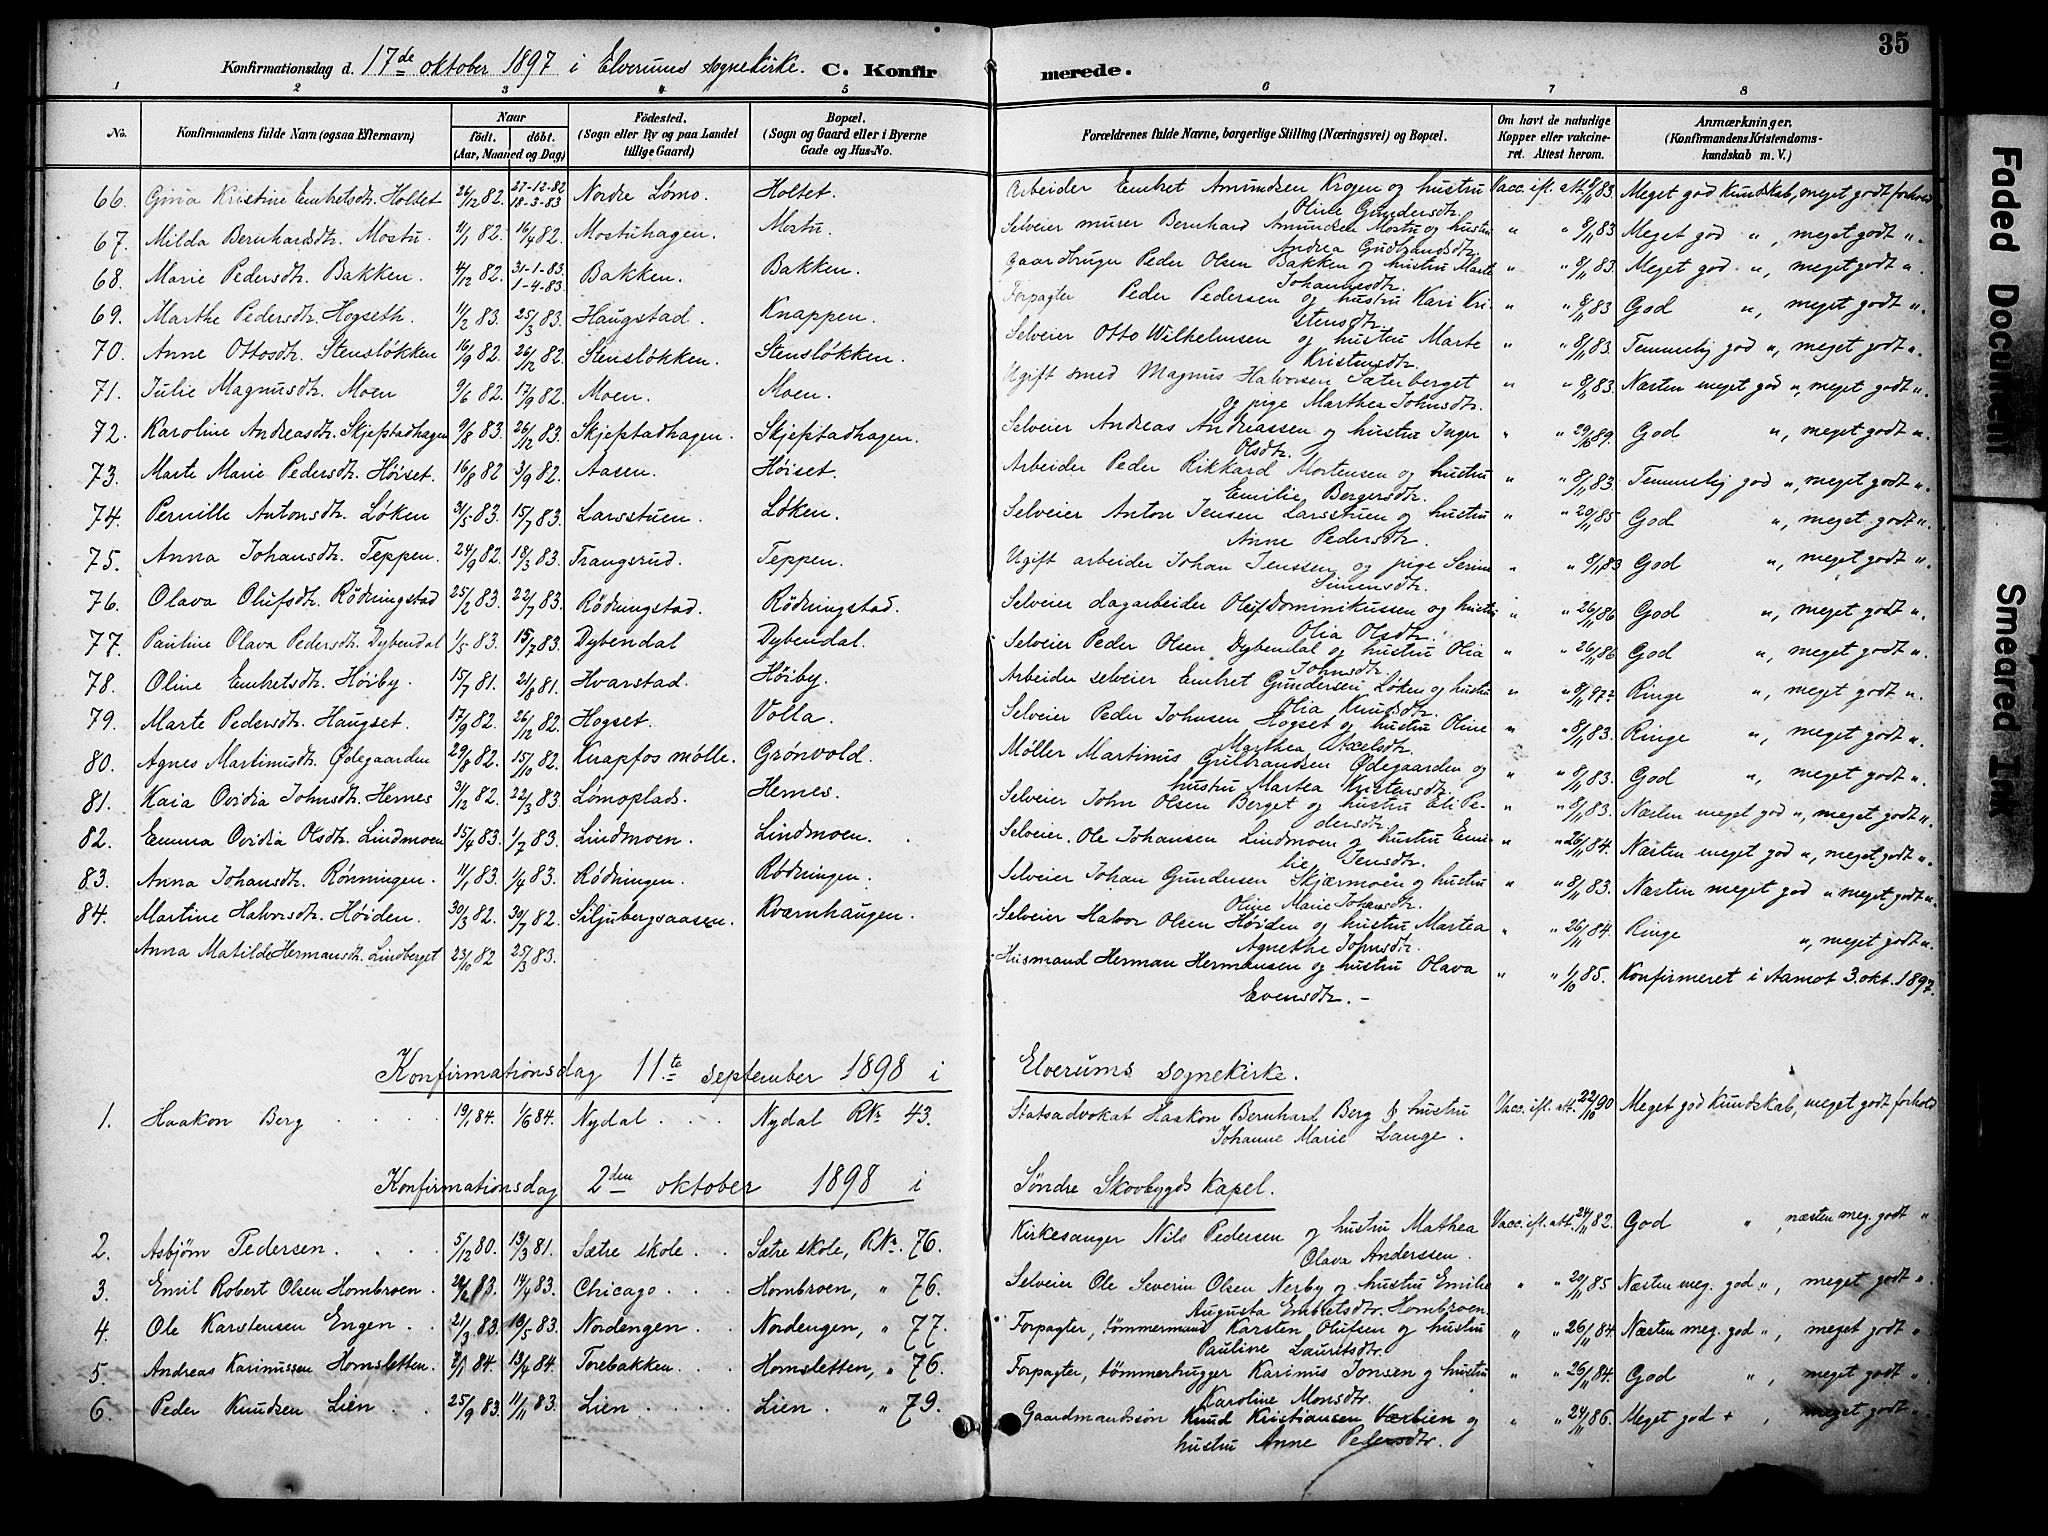 35
Konfirmationsdag d. 17de oktober 1897 i Elverums sognekirke. C. Konfirmerede.
1 2 3 4 5 6 7 8
No. Konfirmandens fulde Navn (ogsaa Efternavn) Naar født. døbt. (Aar, Maaned og Dag) Fødested. (Sogn eller By og paa Landet tillige Gaard) Bopæl. (Sogn og Gaard eller i Byerne Gade og Hus-No. Forældrenes fulde Navne, borgerlige Stilling (Næringsvei) og Bopæl. Om havt de naturlige Kopper eller vakcineret. Attest herom. Anmærkninger. (Konfirmandens Kristendomskundskab m. V.)
66. Gina Kristine Embretsdtr. Holtet 26/12 82. 27-12-82 18-3-83 Nordre Lømo. Holtet. Arbeider Embret Amundsen Krogen og hustru Vacc. ifl. att. 8/11 83. Meget god kundskab, meget godt forhold
Oline Gundersdtr.
67. Milda Bernhardsdtr. Mostu. 11/1 82. 16/4 82. Mostuhagen. Mostu. Selveier murer Bernhard Amundsen Mostu og hustru " " 8/11 83 Meget god ", meget godt ".
Andrea Gudbrandsdtr.
68. Marie Pedersdtr. Bakken. 4/12 82. 31-1-83. 1-4-83 Bakken. Bakken. Gaardbruger Peder Olsen Bakken og hustru Marte " " 8/11 83. Meget god ", meget godt ".
Johannesdtr.
69. Marthe Pedersdtr. Hogseth. 11/2 83. 25/3 83. Haugstad. Knappen. Forpagter Peder Pedersen og hustru Kari Kri- " " 8/11 83 God ", meget godt ".
stensdtr.
70. Anne Ottosdtr. Stensløkken 16/9 82. 26/12 82. Stensløkken. Stensløkken. Selveier Otto Wilhelmsen og hustru Marte " " 8/11 83. Temmelig god ", meget godt ".
Kristensdtr.
71. Julie Magnusdtr. Moen 9/6 82. 17/9 82. Moen. Moen. Ugift smed Magnus Halvorsen Sæterberget " " 8/11 83. Næsten meget god ", meget godt ".
og pige Marthea Johnsdtr.
72. Karoline Andreasdtr. Skjeftadhagen 9/8 83. 26/12 83. Skjeftadhagen. Skjeftadhagen. Selveier Andreas Andreassen og hustru Inger " " 29/6 89. God ", meget godt ".
Olsdtr.
73. Marte Marie Pedersdtr. Høiset. 16/8 82 3/9 82. Aasen. Høiset. Arbeider Peder Rikkard Mortensen og hustru " " 8/11 83. Temmelig god ", meget godt ".
Emilie Bergersdtr.
74. Pernille Antonsdtr. Løken 31/5 83. 15/7 83. Larsstuen. Løken. Selveier Anton Jensen Larsstuen og hustru " " 20/11 85 God ", meget godt ".
Anne Pedersdtr.
75. Anna Johansdtr. Teppen. 24/9 82. 18/3 83. Trangsrud. Teppen. Ugift arbeider Johan Jenssen og pige Serine " " 8/11 83 God ", meget godt ".
Simensdtr.
76. Olava Olufsdtr. Rødningstad 25/2 83. 22/7 83. Rødningstad. Rødningstad. Selveier dagarbeider Oluf Dominikussen og hustru " " 26/11 86 God ", meget godt ".
Olia Olsdtr.
77. Pauline Olava Pedersdtr. Dybendal 1/5 83. 15/7 83. Dybendal Dybendal. Selveier Peder Olsen Dybendal og hustru Olia " " 26/11 86. God ", meget godt ".
Johnsdtr.
78. Oline Embretsdtr. Høiby. 15/7 81. 21/8 81. Hvarstad. Høiby. Arbeider selveier Embret Gundersen Løken og hustru " " 8/11 97. Ringe ", meget godt ".
Olia Knudsdtr.
79. Marte Pedersdtr. Haugset. 17/9 82. 26/12 82. Hogset. Volla. Selveier Peder Johnsen Hogset og hustru Oline " " 8/11 83. Ringe ", meget godt ".
Marthea Akselsdtr.
80. Agnes Martinusdtr. Ødegaarden 29/8 82. 15/10 82. Knapfos mølle. Grønvold. Møller Martinus Gulbrandsen Ødegaarden og " " 8/11 83. God ", meget godt ".
hustru Martea Kristensdtr.
81. Kaia Ovidia Johnsdtr. Hernes 31/12 82. 22/3 83. Lømoplads. Hernes. Selveier John Olsen Berget og hustru Eli Pe- " " 8/11 83. Næsten meget god ", meget godt ".
dersdtr.
82. Emma Ovidia Olsdtr. Lindmoen 15/4 83. 1/7 83. Lindmoen. Lindmoen. Selveier. Ole Johansen Lindmoen og hustru Emi- " " 26/11 84. Næsten meget god ", meget godt ".
lie Jensdtr.
83. Anna Johansdtr. Rønningen. 11/1 83. 1/4 83. Rødningen. Rødningen. Selveier Johan Gundersen Skjærmoen og hustru " " 8/11 83. Næsten meget god " meget godt ".
Oline Marie Johansdtr.
84. Martine Halvorsdtr. Høiden. 30/3 82. 30/7 82. Siljubergsaasen. Kværnhaugen. Selveier Halvor Olsen Høiden og hustru Martea " " 26/11 84. Ringe ", meget godt ".
Agnethe Johnsdtr.
Anna Matilde Hermansdtr. Lindberget 23/10 82 25/3 83. Husmand Herman Hermansen og hustru Olava " " 1/10 85. Konfirmeret i Aamot 3. okt. 1897.
Evensdtr. -
Konfirmationsdag 11te september 1898 i Elverums sognekirke.
1. Haakon Berg 19/1 84. 1/6 84. Nydal Nydal RNr 43. Statsadvokat Haakon Bernhard Berg & hustru Vacc. ifl. att. 22/10 90 Meget god kundskab, meget godt forhold
Johanne Marie Lange.
Konfirmationsdag 2den oktober 1898 i Søndre Skovbygds Kapel.
2. Asbjørn Pedersen. 5/12 80. 13/3 81. Sætre skole. Sætre skole, RNr. 76. Kirkesanger Nils Pedersen og hustru Mathea Vacc. ifl. att. 24/11 82. God " næsten meg. godt "
Olava Anderssen.
3. Emil Robert Olsen Hombroen. 83. 14/4 83. Chicago. Hombroen, " 76. Selveier Ole Severin Olsen Nerby og hustru Emilie " " 20/11 85 Næsten meg. god ", meget godt ".
Augusta Embretsdtr. Hombroen.
4. Ole Karstensen Engen. 21/3 83. 19/5 83. Nordengen. Nordengen, " 77. Forpagter, tømmermand Karsten Olufsen og hustru " " 26/11 84. Næsten meg. god ", meget godt ".
Pauline Lauritsdtr.
5. Andreas Karinussen Hornsletten. 84. 13/4 84. Torebakken. Hornsletten, " 76. Forpagter, tømmerhugger Karinus Jonsen og hustru " " 26/11 84. God ", meget godt ".
Karoline Monsdtr.
6. Peder Knudsen Lien 25/9 83. 11/11 83. Lien Lien. " 79. Gaardmandssøn Knud Kristiansen Værlien og " " 24/11 86. Meget god + , meget godt "
hustru Anne Pedersdtr.
Faded Document
Smeared Ink